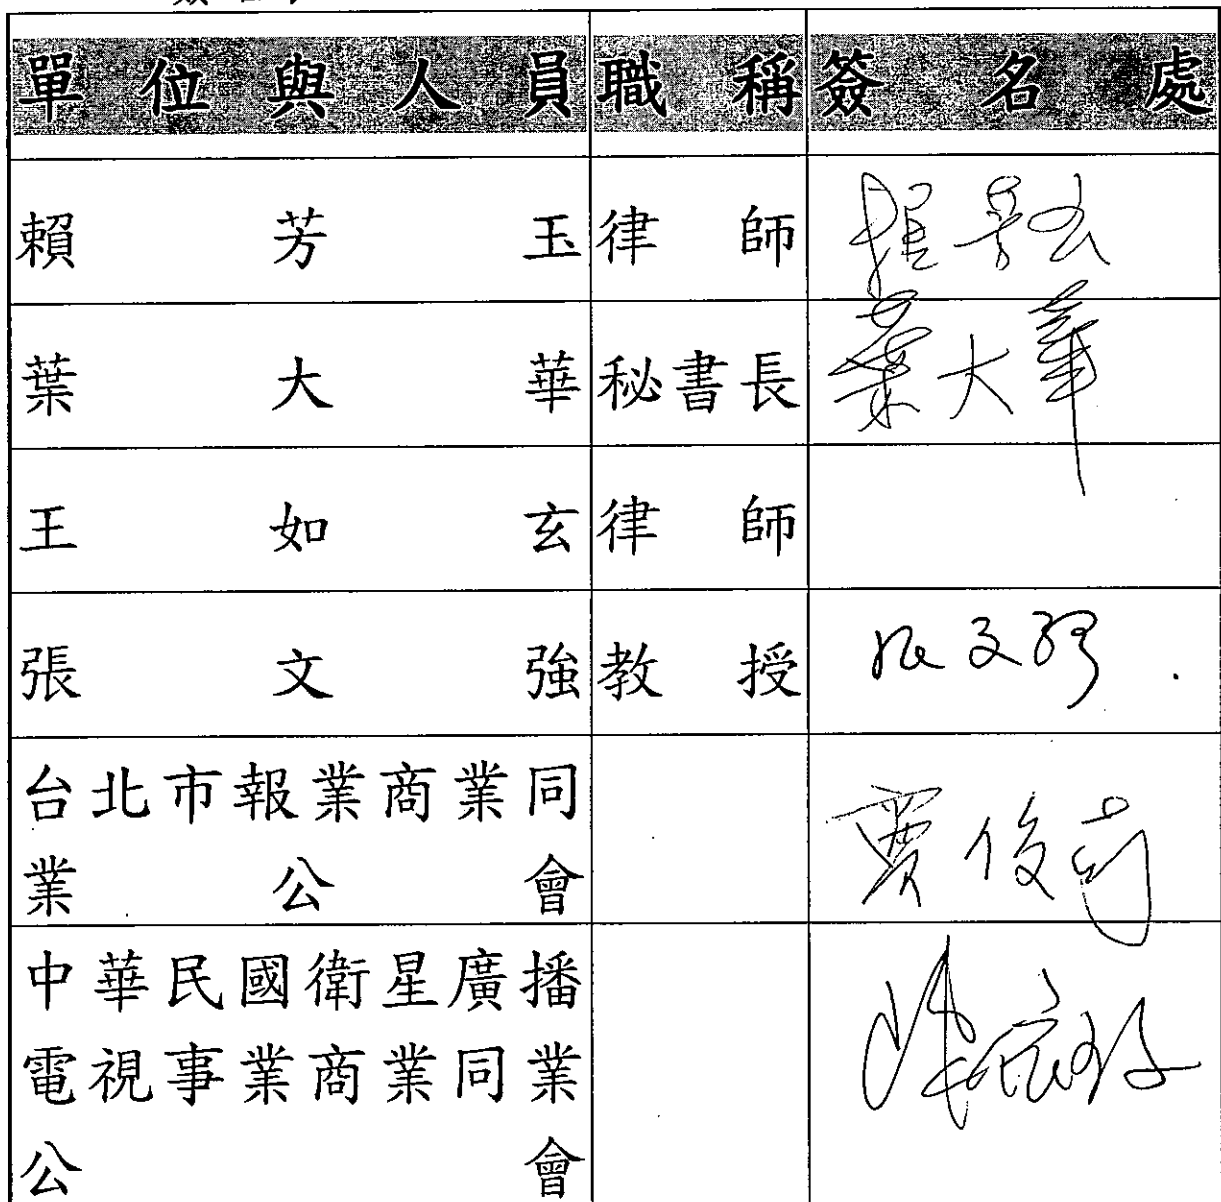 單位與人員 職稱 簽名處
賴芳玉 律師 賴芳玉
葉大華 秘書長 葉大華
王如玄 律師
張文強 教授 張文強
台北市報業商業同
業公會 賈俊
中華民國衛星廣播
電視事業商業同業
公會